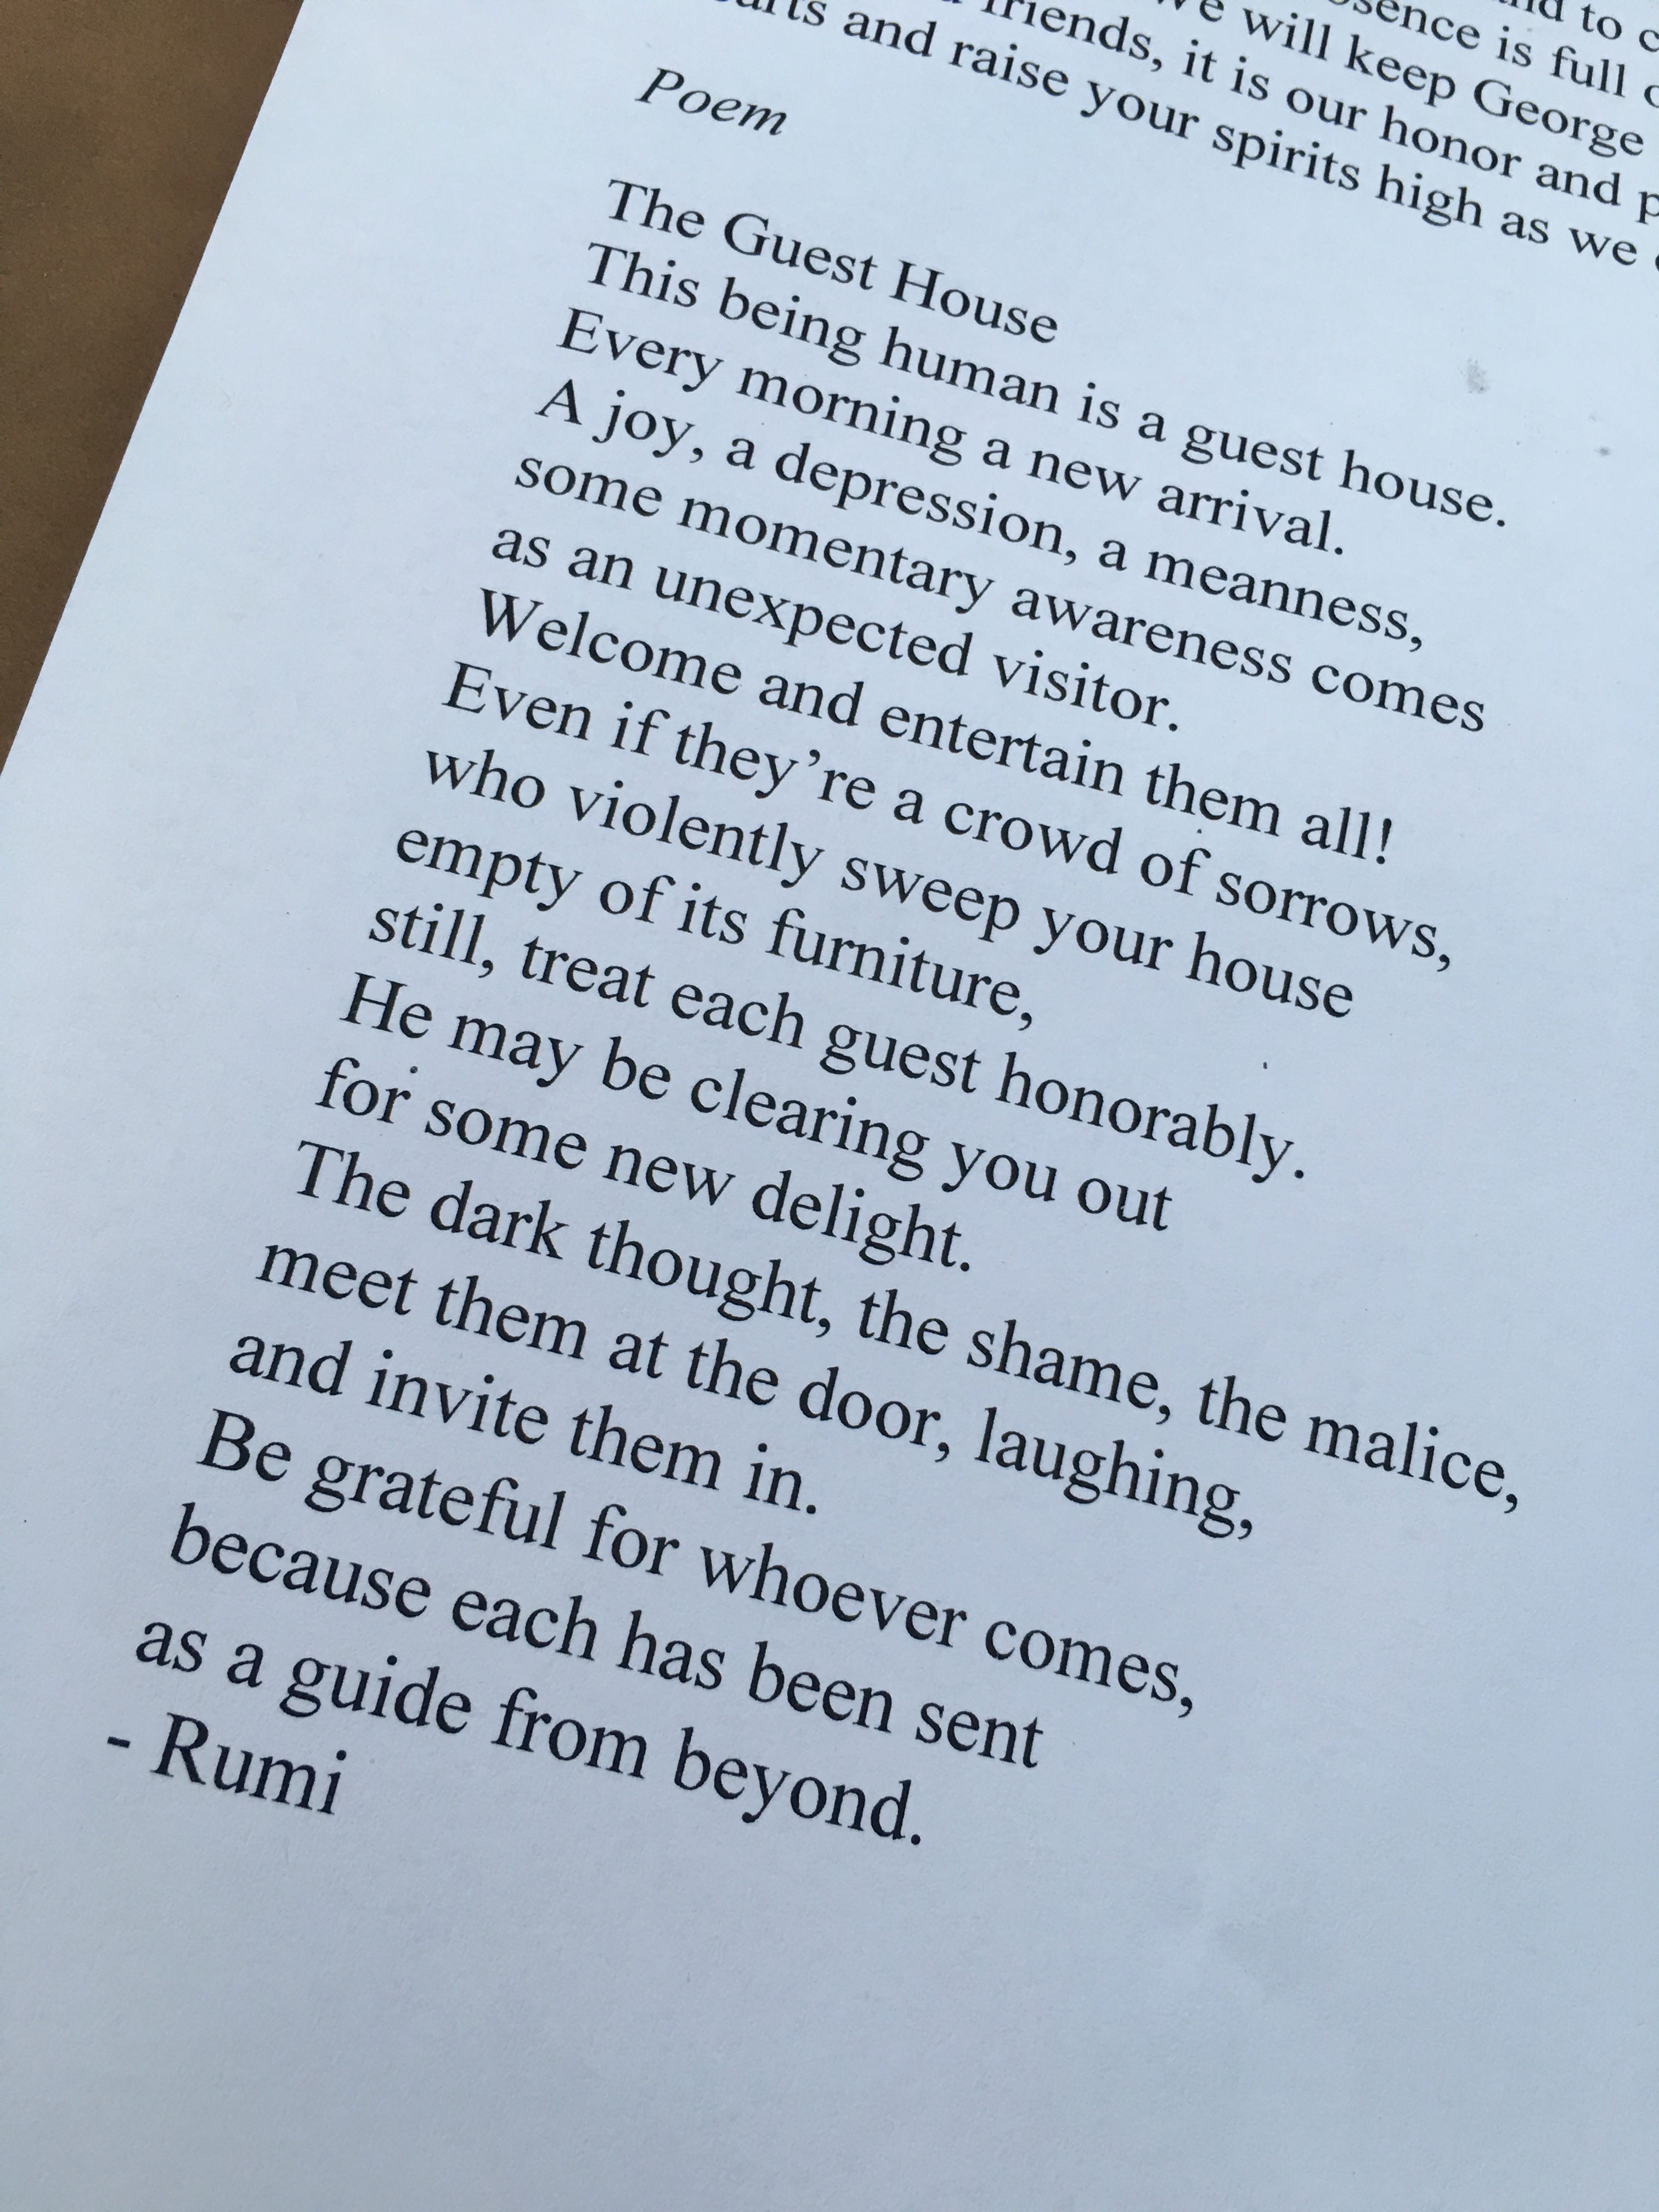 and to
sence is full
We will keep George
friends, it is our honor and
and raise your spirits high as we
Poem
The Guest House
This being human is a guest house.
Every morning a new arrival.
A joy, a depression, a meanness,
some momentary awareness comes
as an unexpected visitor.
Welcome and entertain them all!
Even if they’re a crowd of sorrows,
who violently sweep your house
empty of its furniture,
still, treat each guest honorably.
He may be clearing you out
for some new delight.
The dark thought, the shame, the malice,
meet them at the door, laughing,
and invite them in.
Be grateful for whoever comes,
because each has been sent
as a guide from beyond.
- Rumi